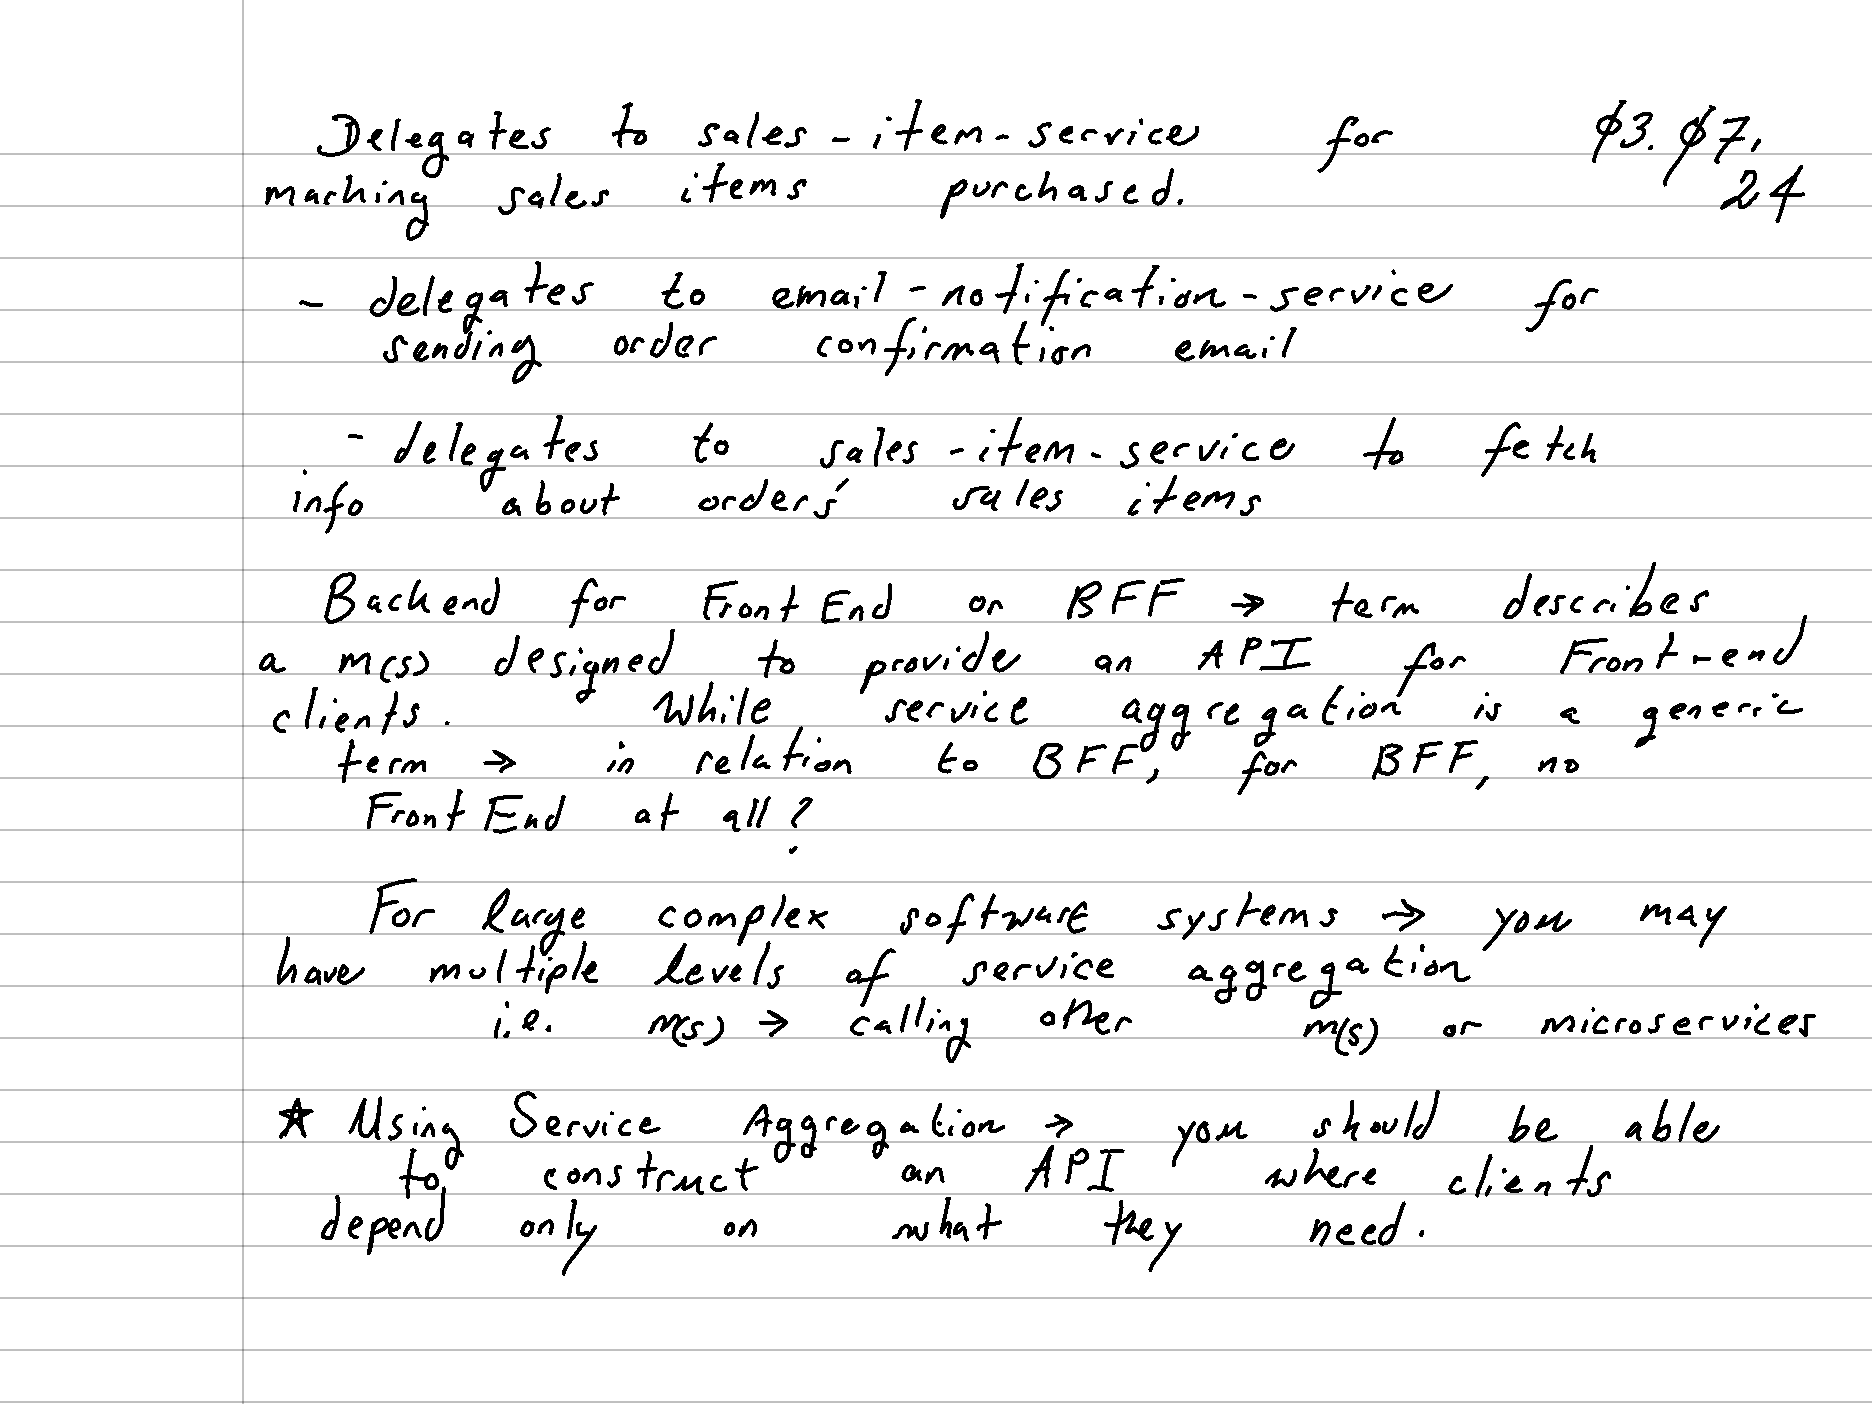 Delegates to sales-item-service for 03.07.
marking sales items purchased. 24
- delegates to email-notification-service for
sending order confirmation email
- delegates to sales-item-service to fetch
info about orders' sales items
Backend for FrontEnd or BFF → term describes
a m(s) designed to provide an API for Front-end
clients. While service aggregation is a generic
term → in relation to BFF, for BFF, no
FrontEnd at all?
For large complex software systems → you may
have multiple levels of service aggregation
i.e. m(s) → calling other m(s) or microservices
★ Using Service Aggregation → you should be able
to construct an API where clients
depend only on what they need.